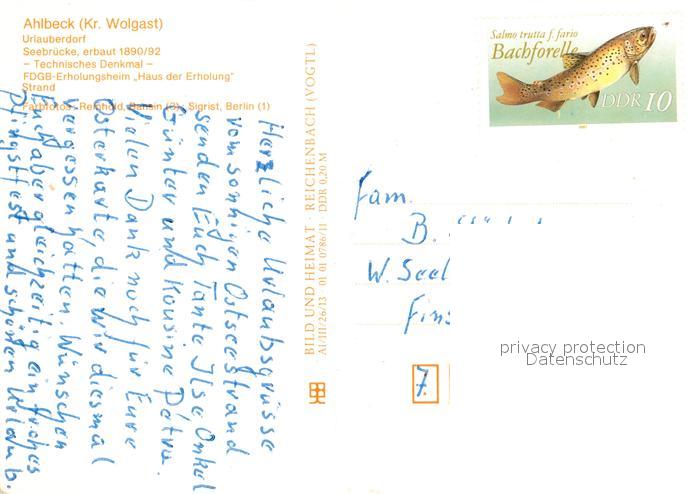 Ahlbeck (Kr. Wolgast)
Urlauberdorf
Seebrücke, erbaut 1890/92
– Technisches Denkmal –
FDGB-Erholungsheim „Haus der Erholung"
Strand
Farbfotos: Reinhold, Bansin (3), Sigrist, Berlin (1)
Herzliche Urlaubsgrüsse
vom sonnigen Ostseestrand
senden Euch Tante Ilse Onkel
Günter und Kousine Petra.
Vielen Dank noch für Eure
Osterkarte, die wir diesmal
vergessen hatten. Wünschen
Euch aber gleichzeitig ein frohes
Pfingstfest und schönen Urlaub.
BILD UND HEIMAT · REICHENBACH (VOGTL)
A1/III/26/13 01 01 0786/11 DDR 0,20 M
Salmo trutta f. fario
Bachforelle
DDR 10
Fam.
B.
W. Seel
Fins
7.
privacy protection
Datenschutz